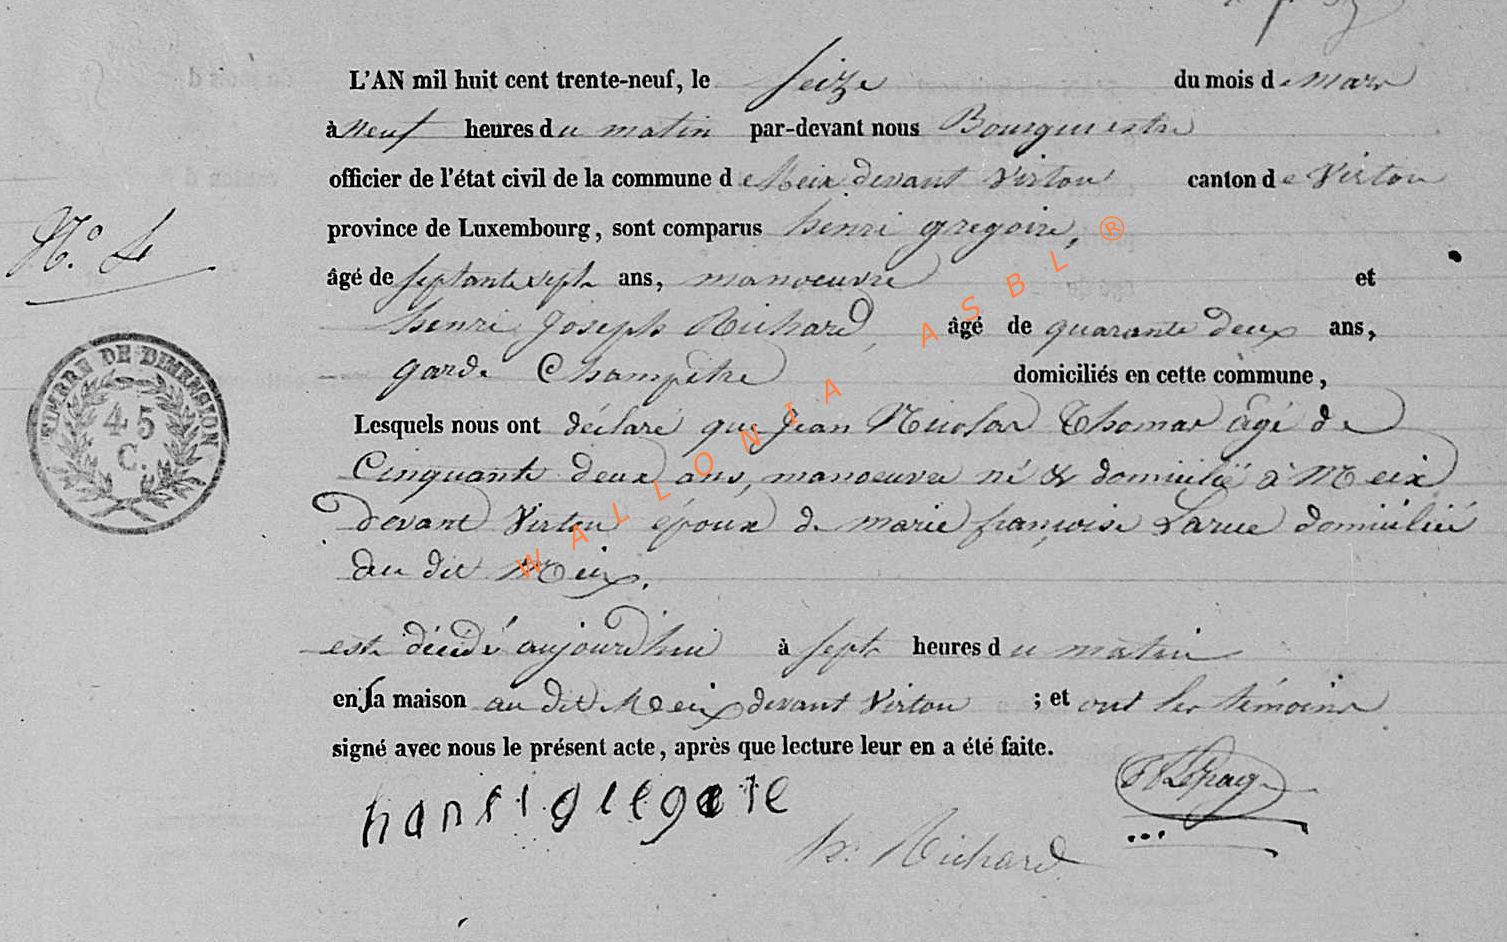 L'AN mil huit cent trente-neuf, le seize du mois de mars
à neuf heures du matin par-devant nous Bourguestre
officier de l'état civil de la commune de Meix devant Virton canton de Virton
province de Luxembourg, sont comparus henri gregoire,
N.° 4
âgé de septante sept ans, manoeuvre et
henri Joseph Richard, âgé de quarante deux ans,
garde Champêtre domiciliés en cette commune,
Lesquels nous ont déclaré que Jean Nicolas Thomas âgé de
Cinquante deux ans, manoeuvre né & domicilié à Meix
devant Virton époux de marie françoise Larue domiciliée
au dit Meix.
est décédé aujourd'hui à sept heures du matin
en sa maison au dit Meix devant Virton ; et ont les témoins
signé avec nous le présent acte, après que lecture leur en a été faite.
hanri gregoire
h: Richard
TIMBRE DE DIMENSION
45
C.
WALLONIA ASBL ®